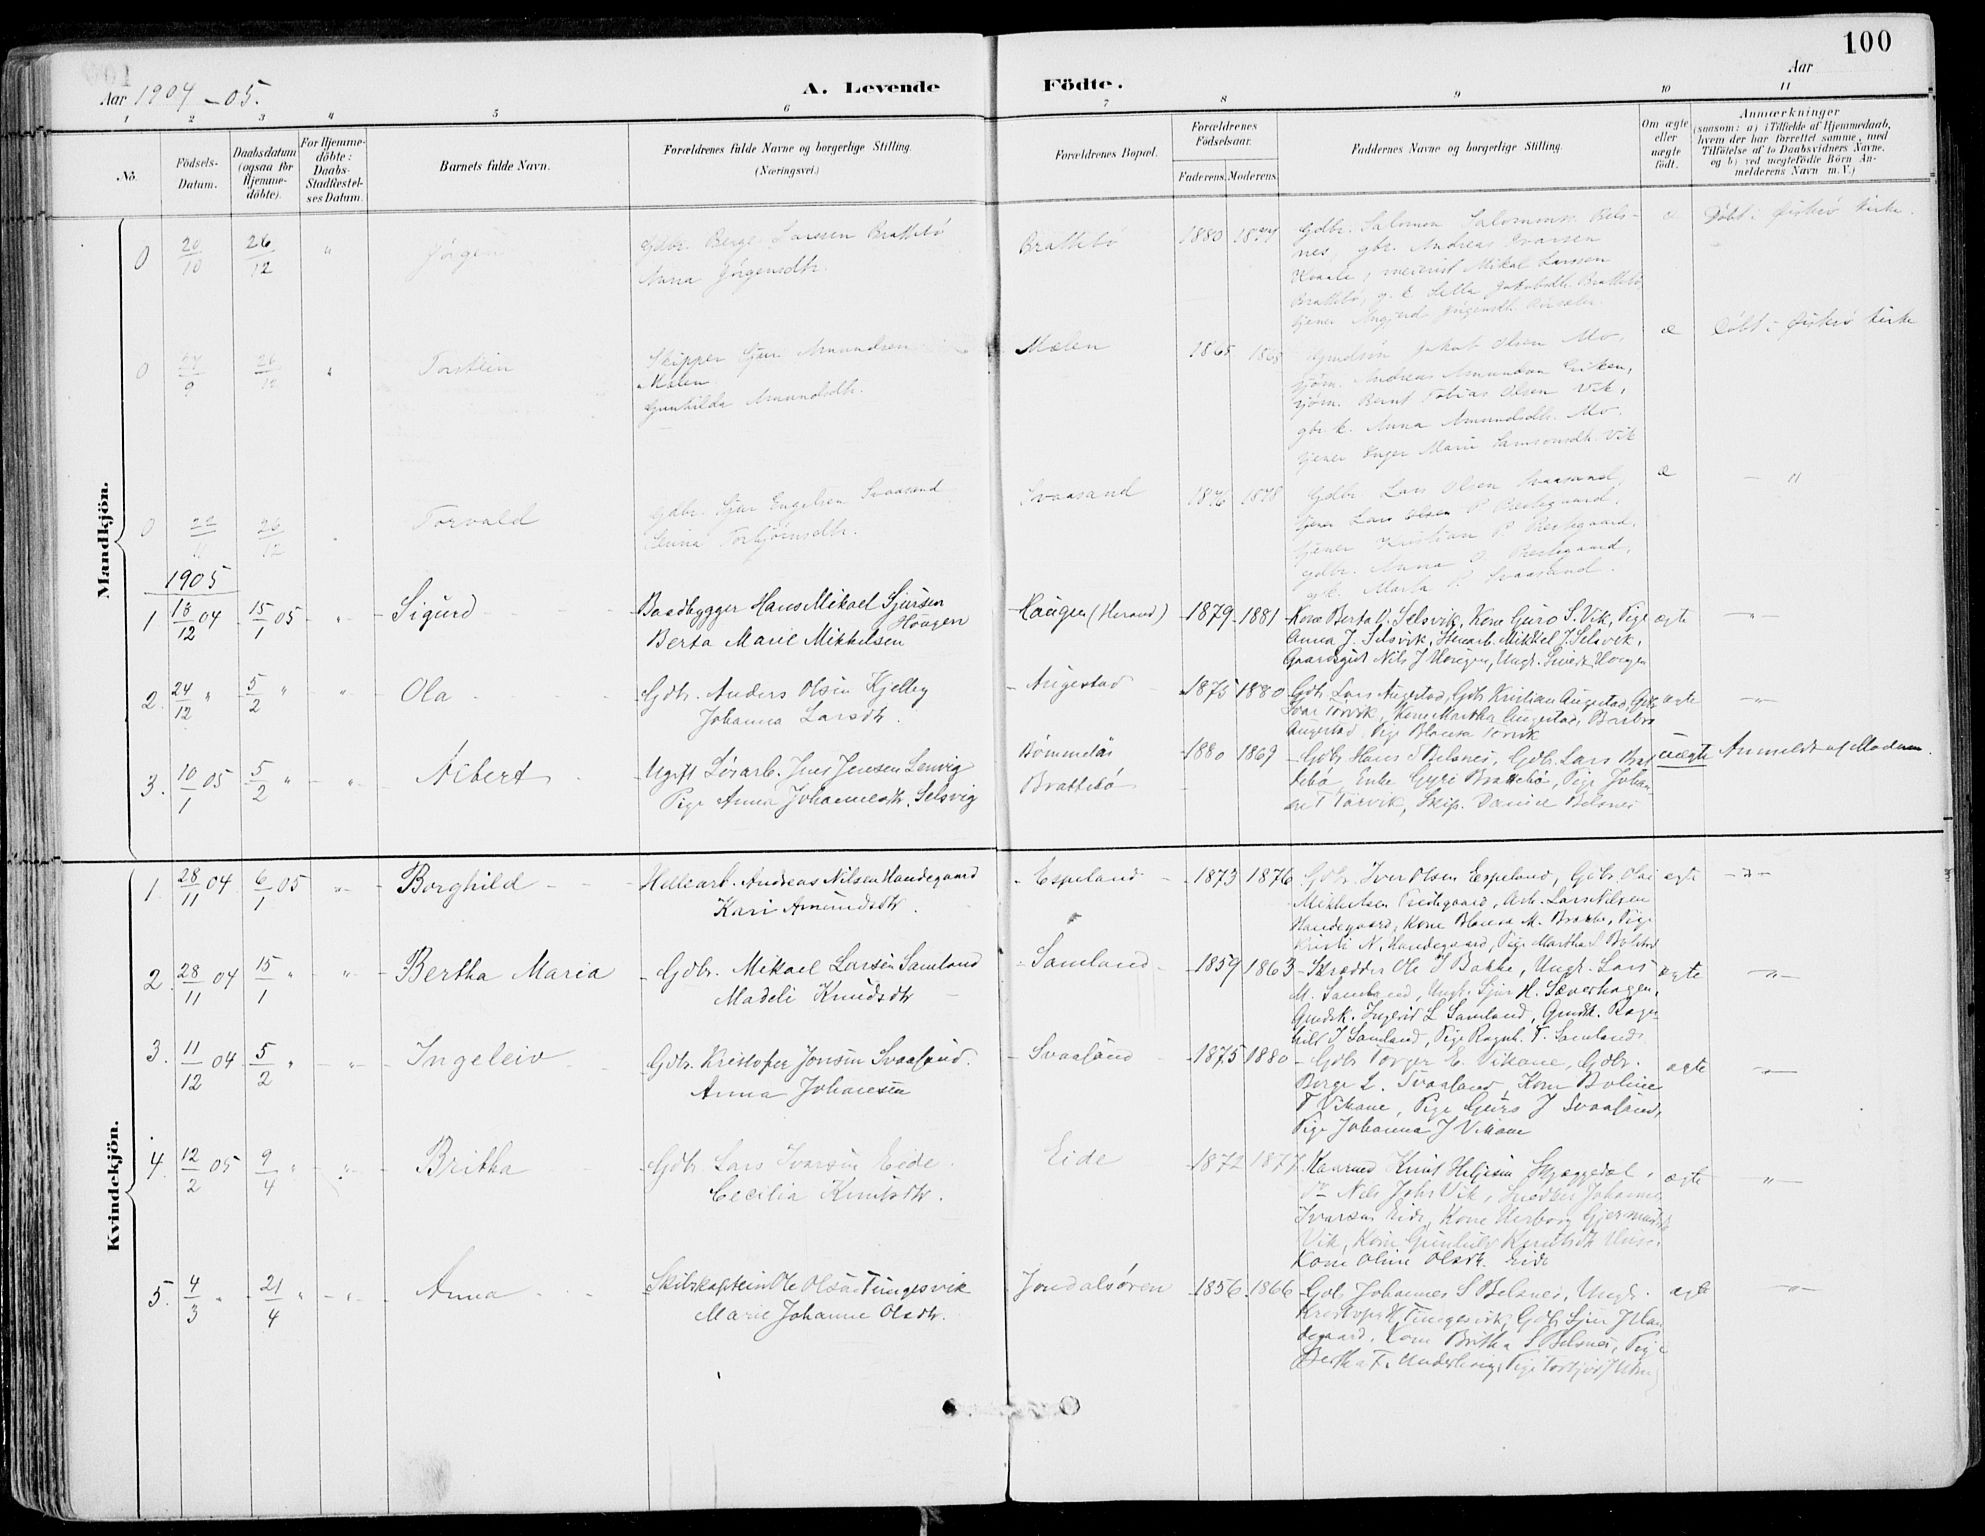 100
Aar 1904-05.
A. Levende Födte.
Aar
1 2 3 4 5 6 7 8 9 10 11
No.
Födsels-Datum.
Daabsdatum (ogsaa for Hjemmedöbte).
For Hjemmedöbte: Daabs-Stadfæstelses Datum.
Barnets fulde Navn.
Forældrenes fulde Navne og borgerlige Stilling. (Næringsvei.)
Forældrenes Bopæl.
Forældrenes Födselsaar.
Faderens. Moderens.
Faddernes Navne og borgerlige Stilling.
Om ægte eller uægte födt.
Anmærkninger
(saasom: a) i Tilfælde af Hjemmedaab, hvem der har forrettet samme, med Tilföielse af to Daabsvidners Navne, og b) ved uægtefödte Börn Anmelderens Navn m. V.)
Mandkjön.
0 20/10 26/12 " Jörgen
Gdbr. Berge Larssen Brattebö
Anna Jörgensdtr.
Brattebö 1880
Gdbr. Salomon Salomons. Bels-
nes, gbr. Andreas Ivarsen
Kvaale, Mikal Larssen
Brattebö, g. k. Sella Jakobsdtr. Brattebö
æ Döbt i Øistesö Kirke.
0 26/12 " Torstein
Skipper Sjur Amundsen
Mælen
Gunhilda Amundsdtr.
Mælen 1865
Jakob Olsen Mo,
Andreas Amundsen Eiken,
Bernt Tobias Olsen Vik,
gbr. k. Anna Amundsdtr. Mo.
tjener Inger Marie Samsonsdtr. Vik
æ Döbt i Øistesö Kirke
0 26/12 Torvald
gdbr. Sjur Engelsen Svaasand
Torbjørnsdtr.
Svaasand 1876 1878
Gdbr. Lars Olsen Svaasand,
tjener Lars Olsen P. Prestegaard,
tjener Kristian P. Prestegaard,
gdbr. Anna O. Prestegaard,
gk. Marta P. Svaasand.
æ — "
1905
1 18/12 04 15/1 05 - " - Sigurd
Baadbygger Hans Mikael Sjursen
Haugen
Berta Marie Mikkelsen
Haugen (Herand) 1879 1881
Kone Berta O. Selsvik, Kone Guro S. Vik, Pige
Anna J. Selsvik, Mikkel J. Selsvik,
Gaardsgut Nils J Haugen, Ungk. Haugen
ægte - " -
2. 24/12 " 5/2 " " Ola
Gdbr. Anders Olsen Kjelby
Johanna Larsdtr.
Augestad 1875 1880
Gdb. Lars Augestad, Gdb. Kristian Augestad, Gdb
Ivar Torvik, Kone Martha Augestad, Barbro
Augestad, Pige Torvik
ægte - " -
3. 10/1 05 5/2 " " Albert
Ugift Lösarb. Jens Jensen Lenvig
Pige Anna Johannesdtr. Selsvig
Brattebö
1880 1869
Gdbr. Hans S Belsnes, Gdbr. Lars Brat
tebö, Enke Gyri Brattebö, Pige Johan
ne T Torvik, Skip. Daniel Belsnes
uægte Anmeldt af Moderen.
Kvindekjön.
1. 28/11 04 6/1 05 " Borghild
Hellearb. Andreas Nilsen Handegaard
Kari Amundsdtr.
Espeland 1873 1876
Gdbr. Iver Olsen Espeland, Gdbr. Olai
Mikkelsen Prestegaard, Arb. Lars Nilsen
Handegaard, Kone M. Pige
Kristi N. Handegaard, Pige Martha S.
ægte - " -
2. 28/11 04 15/1 " " Bertha Maria
Gdbr. Mikael Larsen Samland
Madeli Knudsdtr
Samland 1859 1863
Skrædder Ole J Bakke, Ungk. Lars
M. Samland, Ungk. Sjur H. Sæverhagen,
Gmdsk. Ingerid L Samland, Gmdk. Ragn-
hild J Samland, Pige Ragnh. T. Samland
ægte - " -
3. 11/12 04 5/2 " " Ingeleiv
Gdbr. Kristofer Jonsen Svaasand.
Anna Johansen
Svaasand 1875 1880
Gdbr. Torger E. Vikane, Gdbr.
Berge L. Svaasand, Kone Boline
T Vikane, Pige Guro J Svaasand,
Pige Johanna J Vikane
ægte - " -
4. 12/2 05 9/4 " " Britha
Gdbr. Lars Ivarsen Eide
Cecilia Knutsdtr.
Eide 1872 1877
Kaarmd Knut Helgesen Skjæggedal,
Do Nils Johs Vik, Snedker Johannes
Ivarsen Eide, Kone Herborg Gjermundsdtr
Vik, Kone Gunhild Knutsdtr
Kone Oline Olsdtr. Eide
ægte - " -
5. 4/3 " 21/4 " " Anna
Skibskaptein Ole Olsen Tungesvik
Marie Johanne Olsdtr.
Jondalsören 1856 1866
Gdb. Johannes S Belsnes, Ungk.
Kristofer Tungesvik, Gdb. Sjur J Han
degaard, Kone Britha S Belsnes, Pige
Bertha T. Underhaug, Pige
ægte - " -